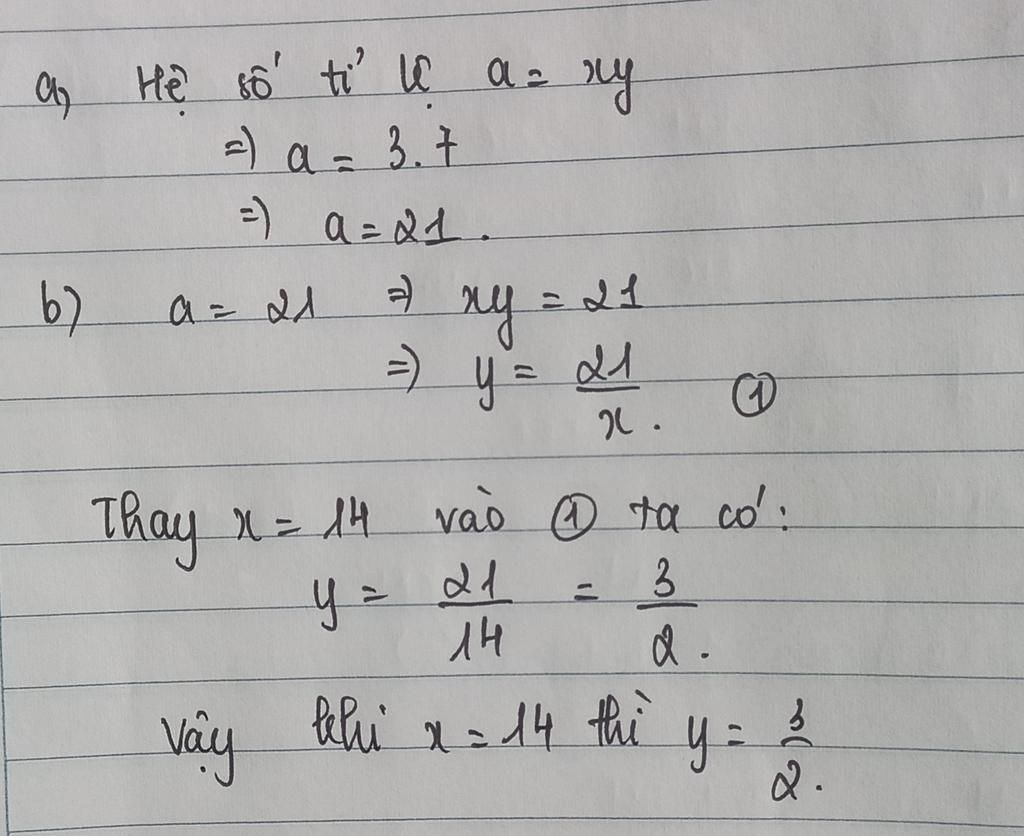 a) Hệ số tỉ lệ a = xy
=) a = 3.7
=) a = 21.
b) a = 21 =) xy = 21
=) y = 21/x. ①
Thay x = 14 vào ① ta có:
y = 21/14 = 3/2.
Vậy khi x = 14 thì y = 3/2.